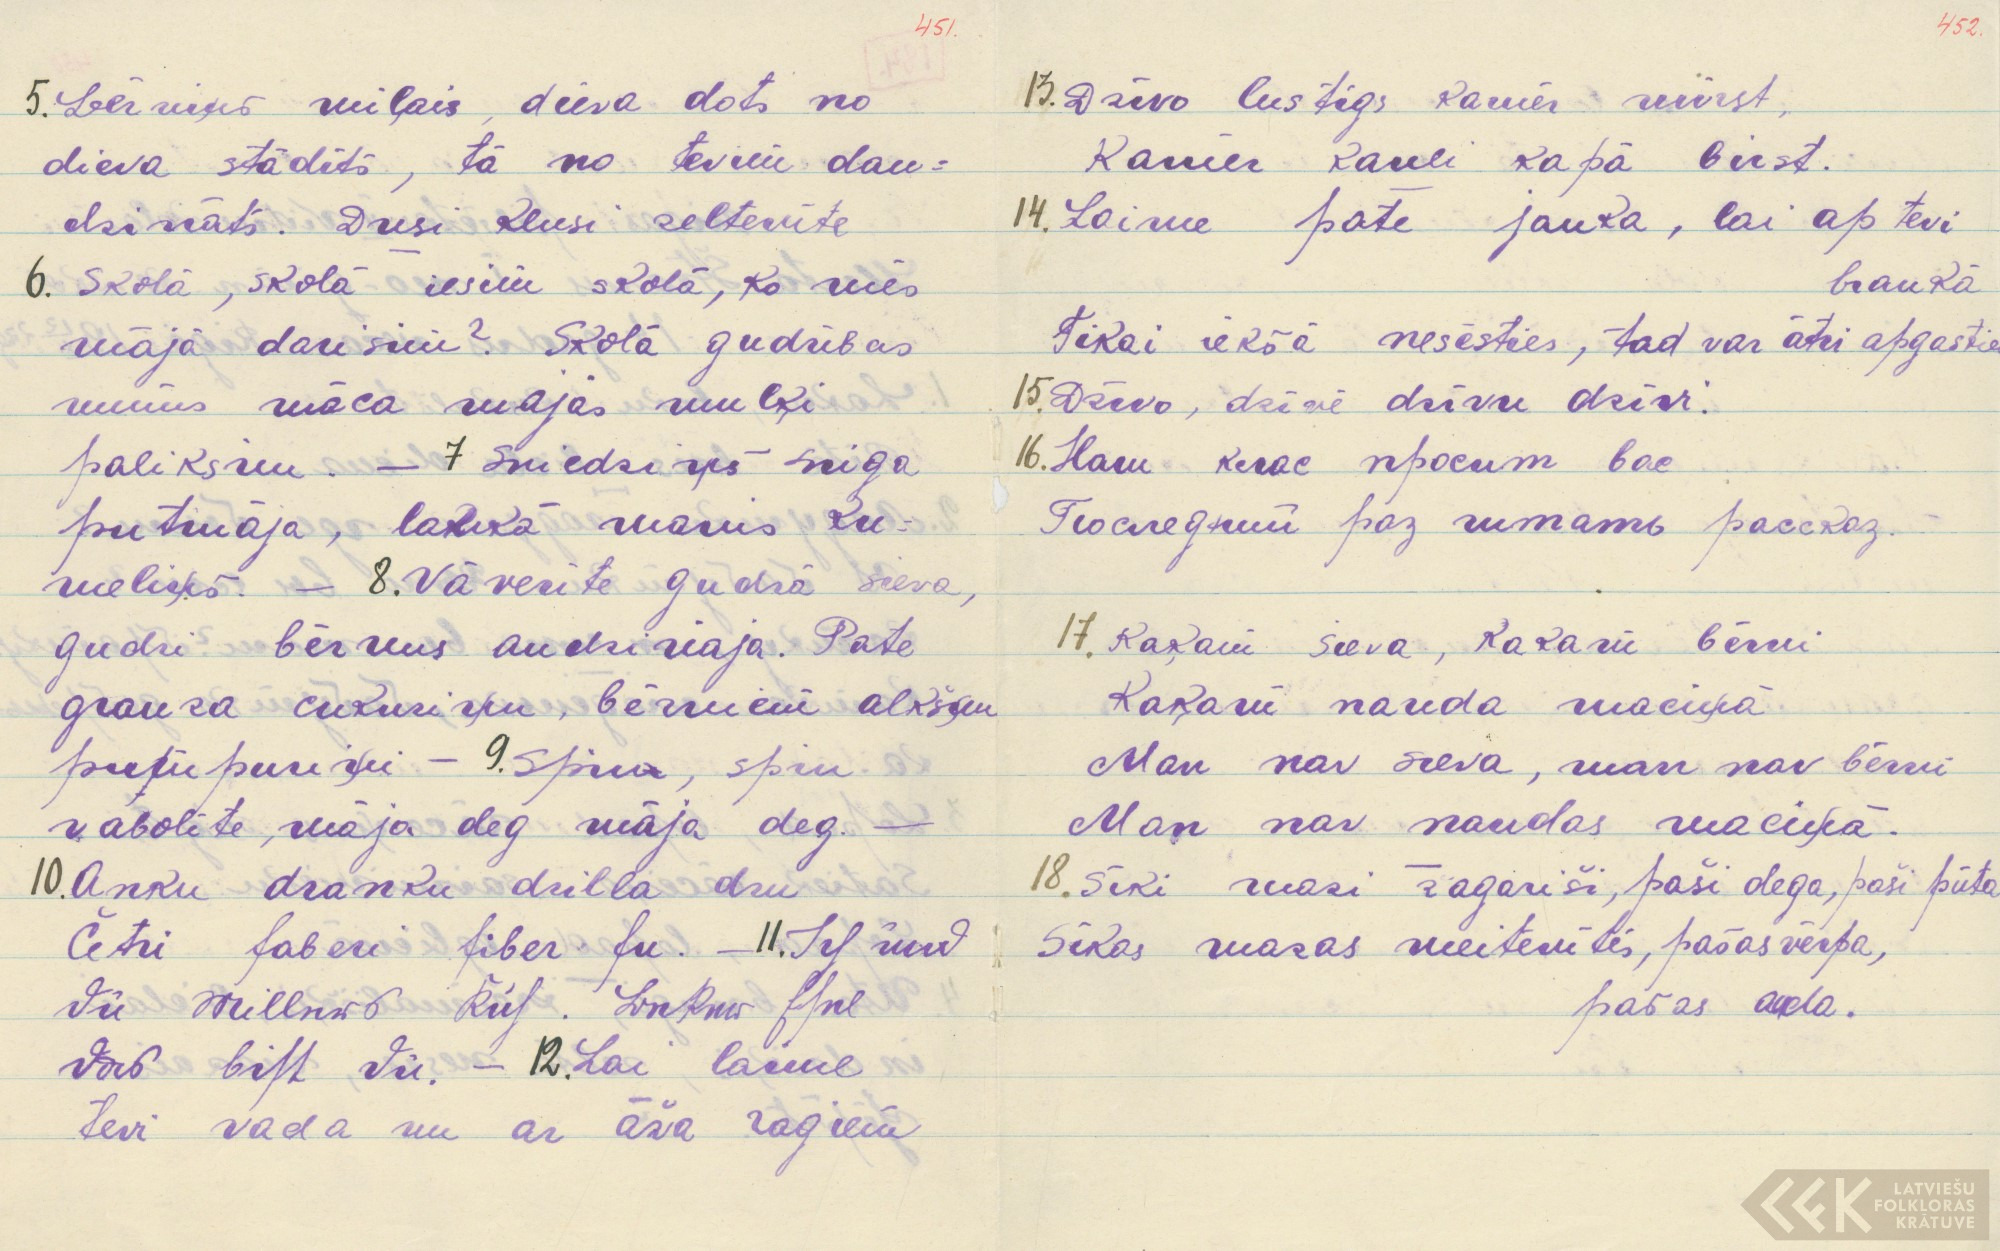 451.
5. Bērniņš miļais, dieva dots no
dieva stādits, tā no tevim dau=
dzināts. Dusi klusi zeltenite
6. Skolā, skolā iesim skolā, ko mēs
mājā darisim? Skolā gudribas
mums māca mājās muļķi
paliksim. — 7 Sniedziņš sniga
putināja, laukā manis ku=
meliņš. — 8. Vāverite gudrā sieva,
gudri bērnus audzināja. Pate
grauza cukuriņu, bērniem alkšņu
pumpuriņi — 9. Spin, spin
vabolite, māja deg māja deg. —
10. Anku dranku drilla dru
Četri faberi fiber fu. — 11. Ich und
du Millers Kuh. Beckers Esel
das bist du. — 12. Lai laime
tevi vada un ar āža ragiem
452.
13. Dzivo lustigs kamēr mirst,
Kamēr kauli kapā birst.
14. Laime pate jauka, lai ap tevi
braukā
Tikai iekšā nesēsties, tad var ātri apgasties
15. Dzivo, dzivē dzivu dzivi.
16. Наш класс просит вас
Последний раз читать рассказ.
17. Kaķam sieva, kaķam bērni
Kaķam nauda maciņā
Man nav sieva, man nav bērni
Man nav naudas maciņā.
18. Siki mazi žagariši, paši dega, paši pūta
Sikas mazas meitenitēs, pašas vērpa,
pašas auda.
LATVIEŠU
FOLKLORAS
KRĀTUVE